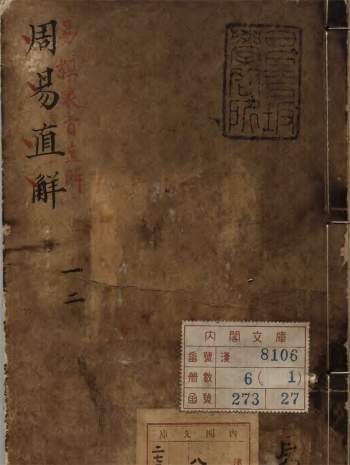 周易直解
一二
昌平坂
學問所
內閣文庫
番號 漢 8106
冊數 6(1)
函號 273 27
內閣文庫